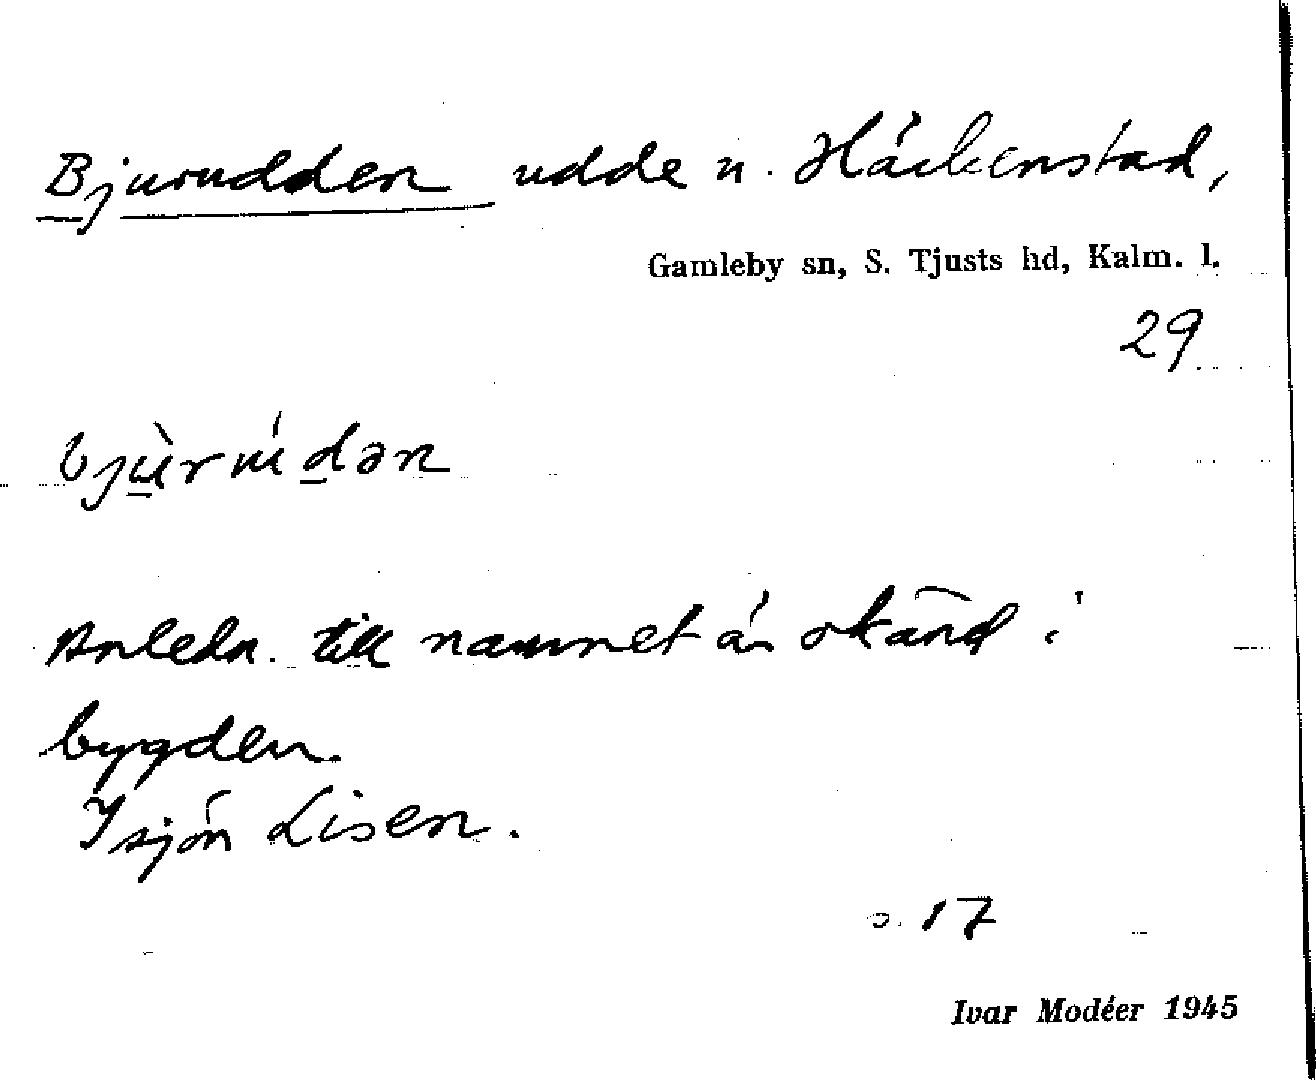 Bjurudden udde u. Häckenstad,
Gamleby sn, S. Tjusts hd, Kalm. l.
29
bjù̲rúd̲ən
Anledn. till namnet är okänd i
bygden.
I sjön Lisen.
s. 17
Ivar Modéer 1945